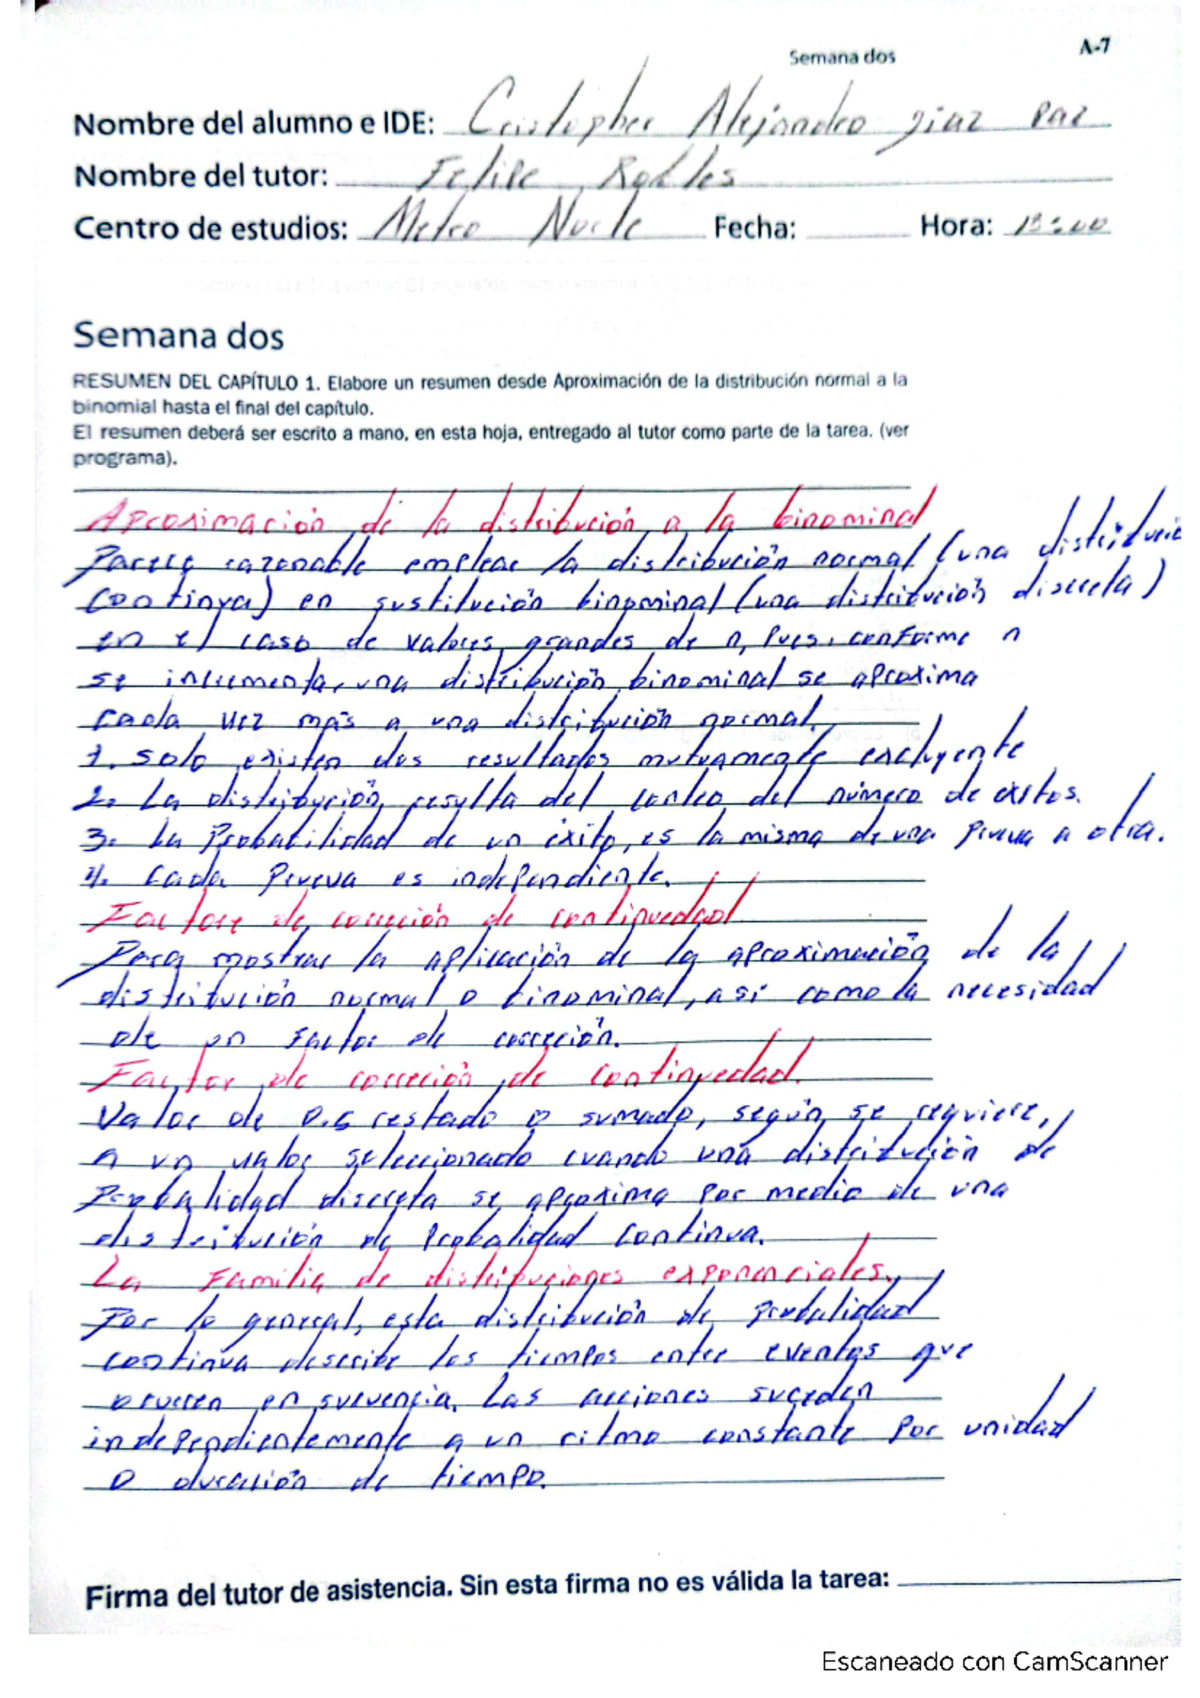 Semana dos
A-7
Nombre del alumno e IDE: Cristopher Alejandro Diaz Paz
Nombre del tutor: Felipe Robles
Centro de estudios: Metro Norte Fecha: Hora: 13:00
Semana dos
RESUMEN DEL CAPÍTULO 1. Elabore un resumen desde Aproximación de la distribución normal a la
binomial hasta el final del capítulo.
El resumen deberá ser escrito a mano, en esta hoja, entregado al tutor como parte de la tarea. (ver
programa).
Aproximación de la distribución a la binominal
Parece razonable emplear la distribución normal (una distribució
continua) en sustitución binominal (una distribución discreta)
en el caso de valores grandes de n, pues, conforme n
se incrementa, una distribución binominal se aproxima
cada vez más a una distribución normal.
1. Solo existen dos resultados mutuamente excluyente
2. La distribución resulta del conteo del número de exitos.
3. La Probabilidad de un éxito, es la misma de una prueva a otra.
4. Cada Prueva es independiente.
Factore de correción de continuedad
Para mostrar la aplicación de la aproximación de la
distribución normal o binominal, asi como la necesidad
de un Factor de correción.
Factor de correción de continuedad.
Valor de 0.5 restado o sumado, según se requiere,
A un valor seleccionado cuando una distribución de
Probalidad discreta se aproxima por medio de una
distribución de Probalidad continua.
La Familia de distribuciones exponenciales.
Por lo general, esta distribución de probalidad
continua describe los tiempos entre eventos que
ocurren en secuencia. Las acciones suceden
independientemente a un ritmo constante por unidad
o duración de tiempo.
Firma del tutor de asistencia. Sin esta firma no es válida la tarea:
Escaneado con CamScanner